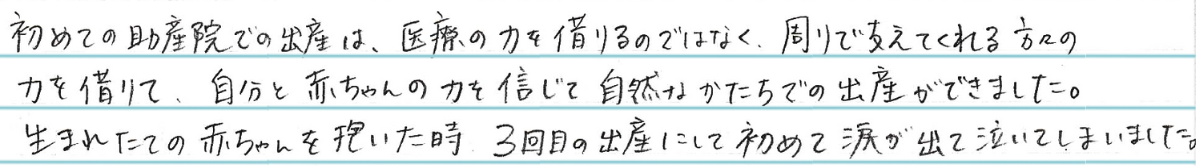 初めての助産院での出産は、医療の力を借りるのではなく、周りで支えてくれる方々の
力を借りて、自分と赤ちゃんの力を信じて自然なかたちでの出産ができました。
生まれたての赤ちゃんを抱いた時、3回目の出産にして初めて涙が出て泣いてしまいました。